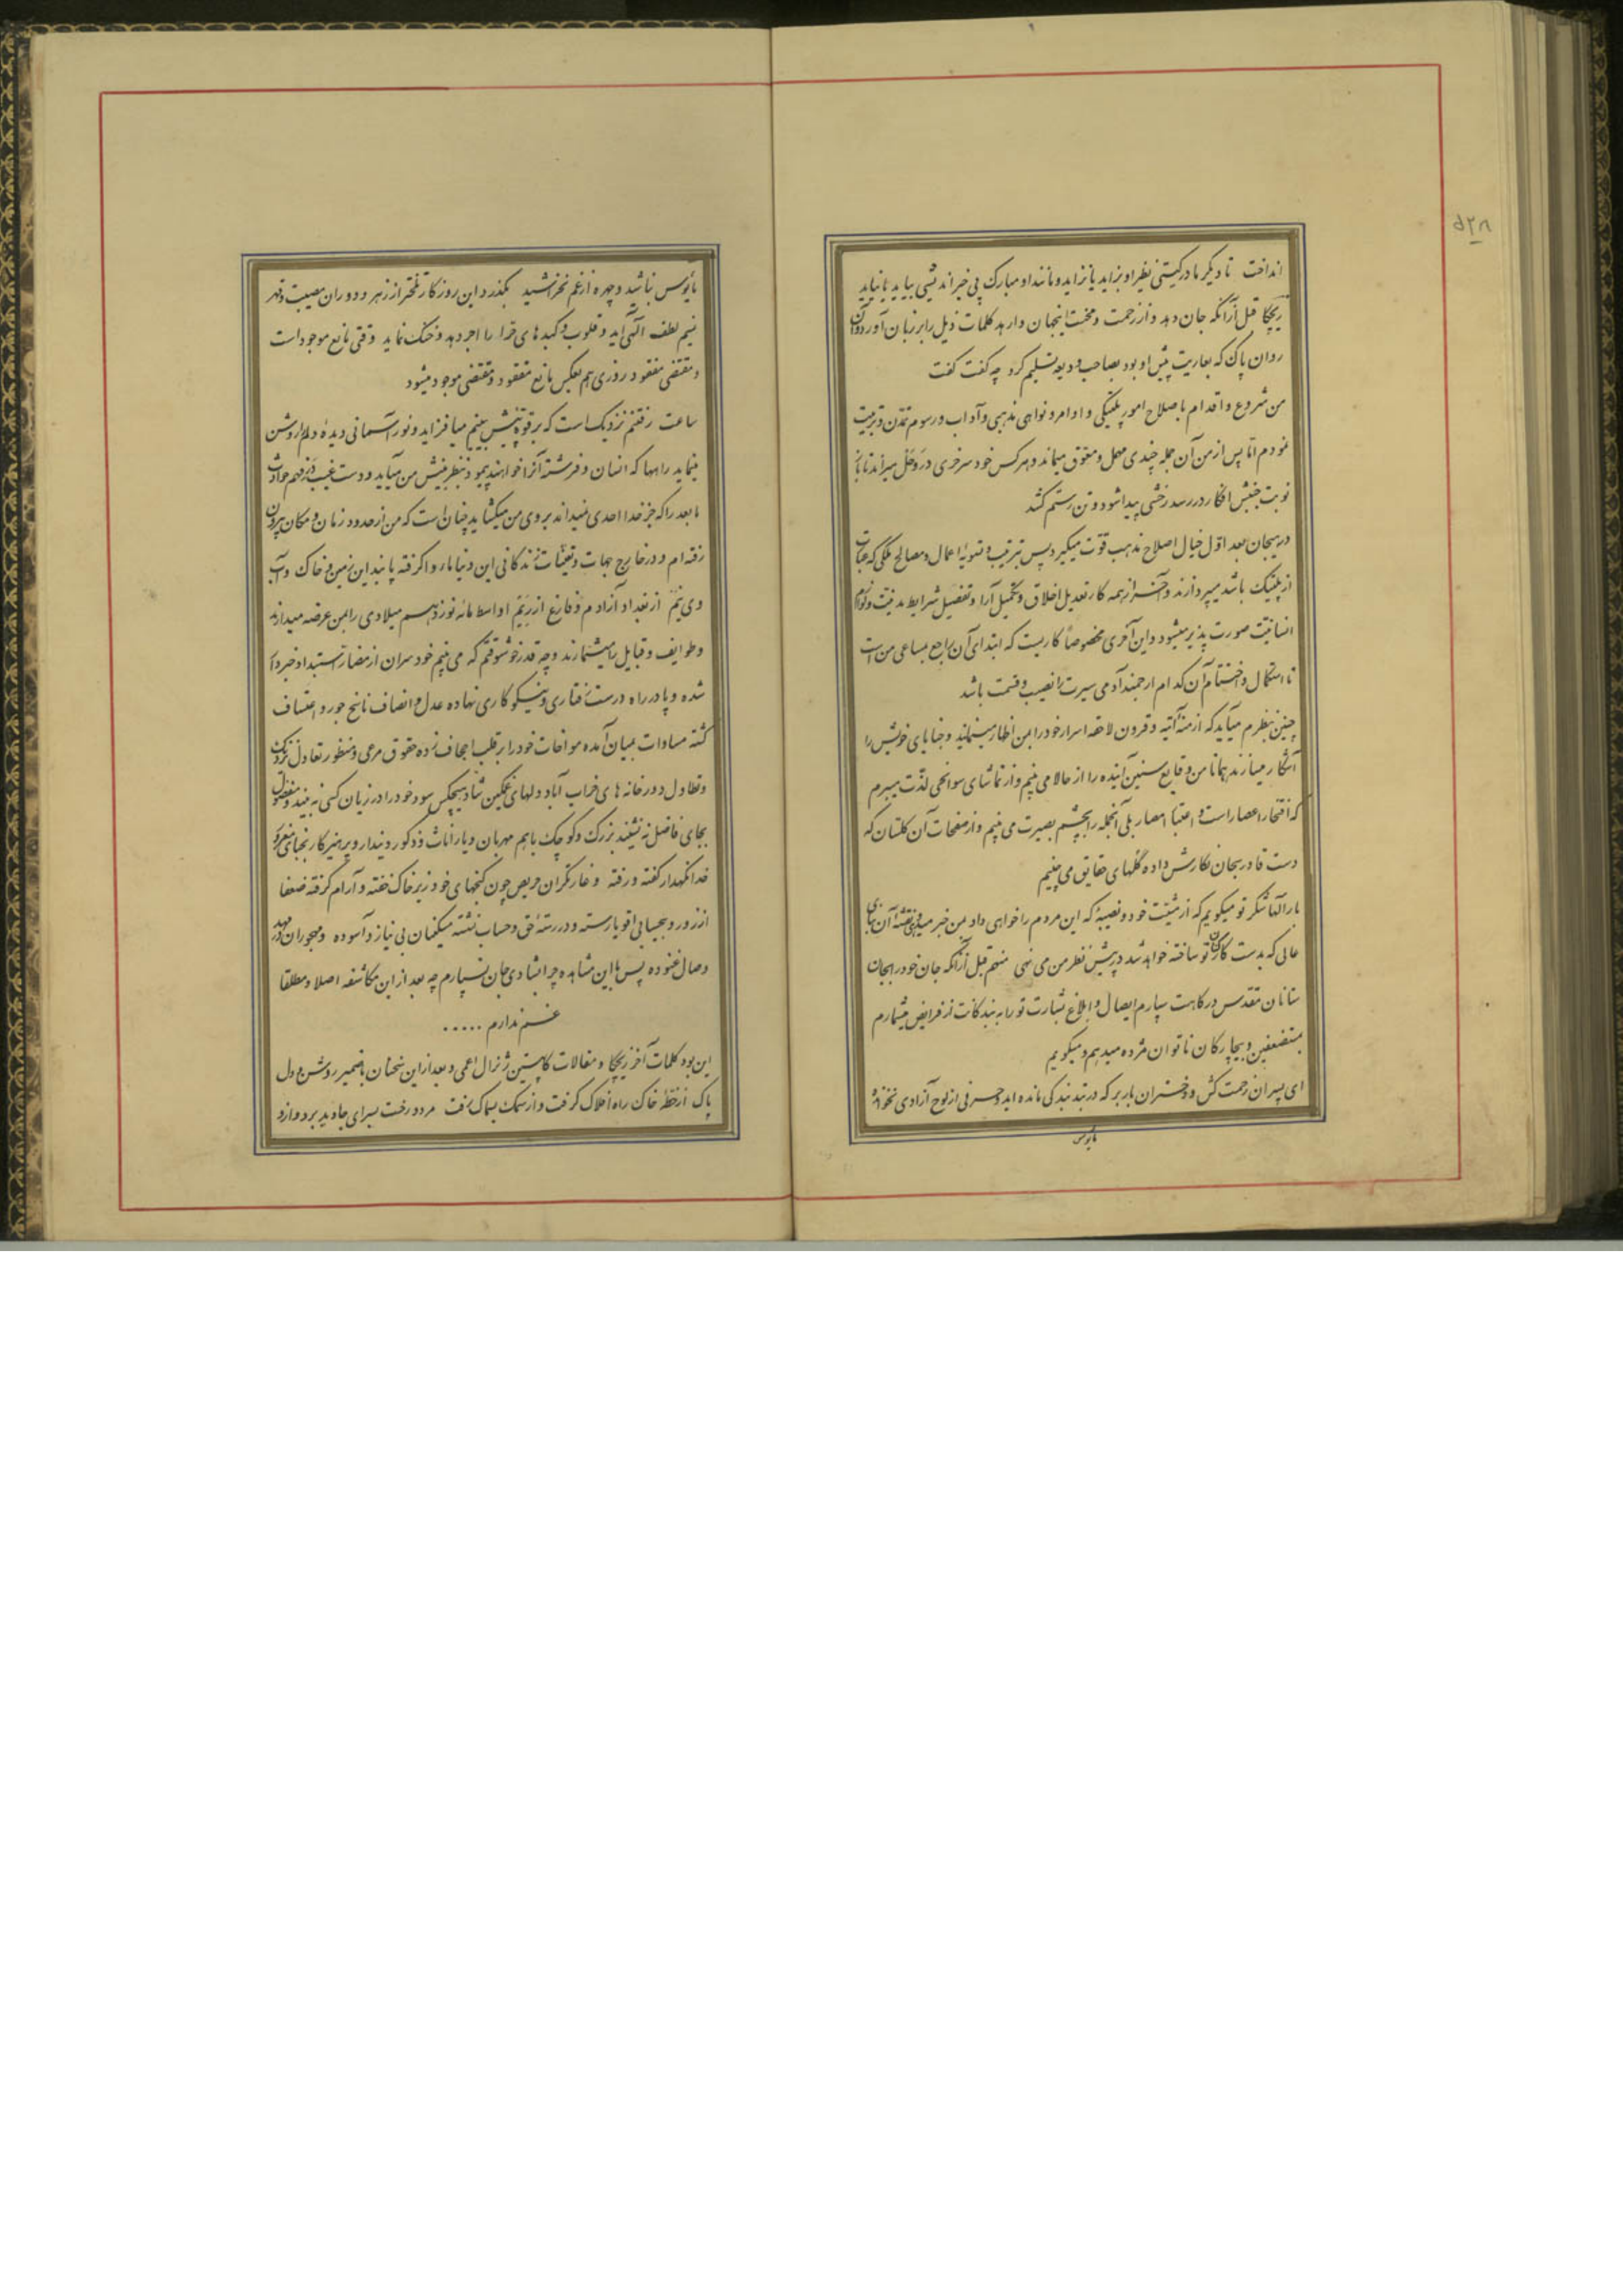 ۵۲۸
انداخت تا دیگر مادر گیتی نظیر او بزاید یا نزاید و مانند او مبارک پی خیراندیشی بیاید یا نیاید
ریچکا قبل از آنکه جان دهد و از زحمت و محنت اینجهان وارهد کلمات ذیل را بر زبان آورد و آن
روان پاک که بعاریت پیش او بود بصاحب ودیعه تسلیم کرد چه گفت گفت
من شروع و اقدام باصلاح امور پلتیکی و اوامر و نواهی مذهبی و آداب و رسوم تمدن و تربیت
نمودم اما پس از من آن جمله چندی مهمل و معوق میماند و هرکس خود سر خری در وحل میراند تا باز
نوبت جنبش افکار در رسد رخشی پیدا شود و تن رستم کشد
در هیجان بعد اول خیال اصلاح مذهب قوت میگیرد پس بترتیب و تسویه اعمال و مصالح ملکی که عبارت
از پلتیک باشد میپردازند و آخر از همه کار تعدیل اخلاق و تکمیل آرا و تفصیل شرایط مدنیت و لوازم
انسانیت صورت پذیر میشود و این آخری مخصوصاً کاریست که ابتدای آن راجع بمساعی من است
تا استکمال و اختتام آن کدام ارجمند آدمی سیرت را نصیب و قسمت باشد
چنین بنظرم میآید که ازمنه آتیه و قرون لاحقه اسرار خود را بمن اظهار مینمایند و خبایای خویش را
آشکار میسازند همانا من وقایع سنین آینده را از حالا می بینم و از تماشای سوانحی لذت میبرم
که افتخار اعصار است و اعتبار امصار بلی آنجمله را بچشم بصیرت می بینم و از صفحات آن گلستان که
دست قادر بیجان نگارش داده گلهای حقایق می چینم
بارالها شکر تو میگویم که از مشیت خود و نصیبهٔ که این مردم را خواهی داد بمن خبر میدهی و نقشهٔ آن بنای
عالی که بدست کارکنان تو ساخته خواهد شد در پیش نظر من می نهی منهم قبل از آنکه جان خود را بجان
ستانان مقدس درگاهت سپارم ایصال و ابلاغ بشارت تو را به بندگانت از فرایض میشمارم
بمستضعفین و بیچارگان ناتوان مژده میدهم و میگویم
ای پسران زحمت کش و دختران باربر که در بند بندگی مانده اید و حرفی از لوح آزادی نخوانده
مأیوس
مأیوس نباشید و چهره از غم نخراشید بگذرد این روزگار تلختر از زهر و دوران مصیبت و قهر
نسیم لطف الهی آید و قلوب و کبدهای حرا را اجر دهد و خنک نماید وقتی مانع موجود است
و مقتضی مفقود روزی هم بعکس مانع مفقود و مقتضی موجود میشود
ساعت رفتنم نزدیک است که بر قوه پیش بینیم میافزاید و نور آسمانی دیده دلم را روشن
مینماید راهها که انسان و فرشته آنرا خواهند پیمود بنظر بینش من میآید و دست غیب در فهم حوادث
مابعد را که جز خدا احدی نمیداند بروی من میگشاید چنان است که من از حدود زمان و مکان بیرون
رفته ام و در خارج جهات و تعینات زندگانی این دنیا ماوا گرفته پابند این زمین و خاک و آب
و ی نیم از بغداد آزادم و فارغ از رَیّم اواسط مائه نوزدهم میلادی را بمن عرضه میدارند
و طوایف و قبایل را میشمارند و چه قدر خوشوقتم که می بینم خودسران از مضار استبداد خبردار
شده و پا در راه درست رفتاری و نیکو کاری نهاده عدل و انصاف ناسخ جور و اعتساف
گشته مساوات بمیان آمده مواخات خود را بر قلب اجحاف زده حقوق مرعی و منظور تعادل نزدیک
و تطاول دور خانه های خراب آباد و دلهای غمگین شاد هیچکس سود خود را در زیان کسی نه بیند و مفضول
بجای فاضل نه نشیند بزرگ و کوچک باهم مهربان و یار اناث و ذکور دیندار و پرهیزکار نجبای مغرور
خدا نگهدار گفته و رفته و غارتگران حریص چون گنجهای خود زیر خاک خفته و آرام گرفته ضعفا
از زور و بیحسابی اقویا رسته و در رستهٔ حق و حساب نشسته میگنمان بی نیاز و آسوده و مهجوران در مهد
وصال غنوده پس با این مشاهده چرا بشادی جان نسپارم چه بعد از این مکاشفه اصلا و مطلقا
غم ندارم .....
این بود کلمات آخر ریچکا و مقالات واپسین ژنرال اعمی و بعد از این سخنان با ضمیر روشن و دل
پاک از خطهٔ خاک راه افلاک گرفت و از سمک بسماک رفت مرد و رخت بسرای جاوید برد و از او